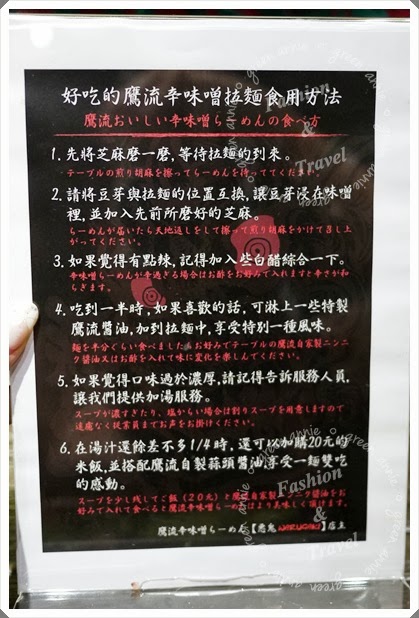 好吃的鷹流辛味噌拉麵食用方法
鷹流おいしい辛味噌らーめんの食べ方
1. 先將芝麻磨一磨,等待拉麵的到來。
テーブルの煎り胡麻を擦ってらーめんを待っててください。
2. 請將豆芽與拉麵的位置互換,讓豆芽浸在味噌
裡,並加入先前所磨好的芝麻。
らーめんが届いたら天地返しをして擦って煎り胡麻をかけて召し上
がってください。
3. 如果覺得有點辣,記得加入些白醋綜合一下。
辛味噌らーめんが辛過ぎる場合はお酢をお好みで入れますと辛さが和
らぎます。
4. 吃到一半時,如果喜歡的話,可淋上一些特製
鷹流醬油,加到拉麵中,享受特別一種風味。
麺を半分くらい食べましたらお好みでテーブルの鷹流自家製ニンニ
ク醤油又はお酢を入れて味に変化を楽しんでください。
5. 如果覺得口味過於濃厚,請記得告訴服務人員,
讓我們提供加湯服務。
スープが濃すぎたり、塩からい場合は割りスープを用意しますので
遠慮なく従業員までお声をお掛けください。
6. 在湯汁還餘差不多1/4時,還可以加購20元的
米飯,並搭配鷹流自製蒜頭醬油享受一麵雙吃
的感動。
スープを少し残してご飯(20元)と鷹流自家製ニンニク醤油をお
好みで入れて食べると鷹流辛味噌らーめんはより美味しく頂けます。
鷹流辛味噌らーめん【悪鬼 】店主
Fashion
&
Travel
green annie
Fashion
&
Travel
green annie